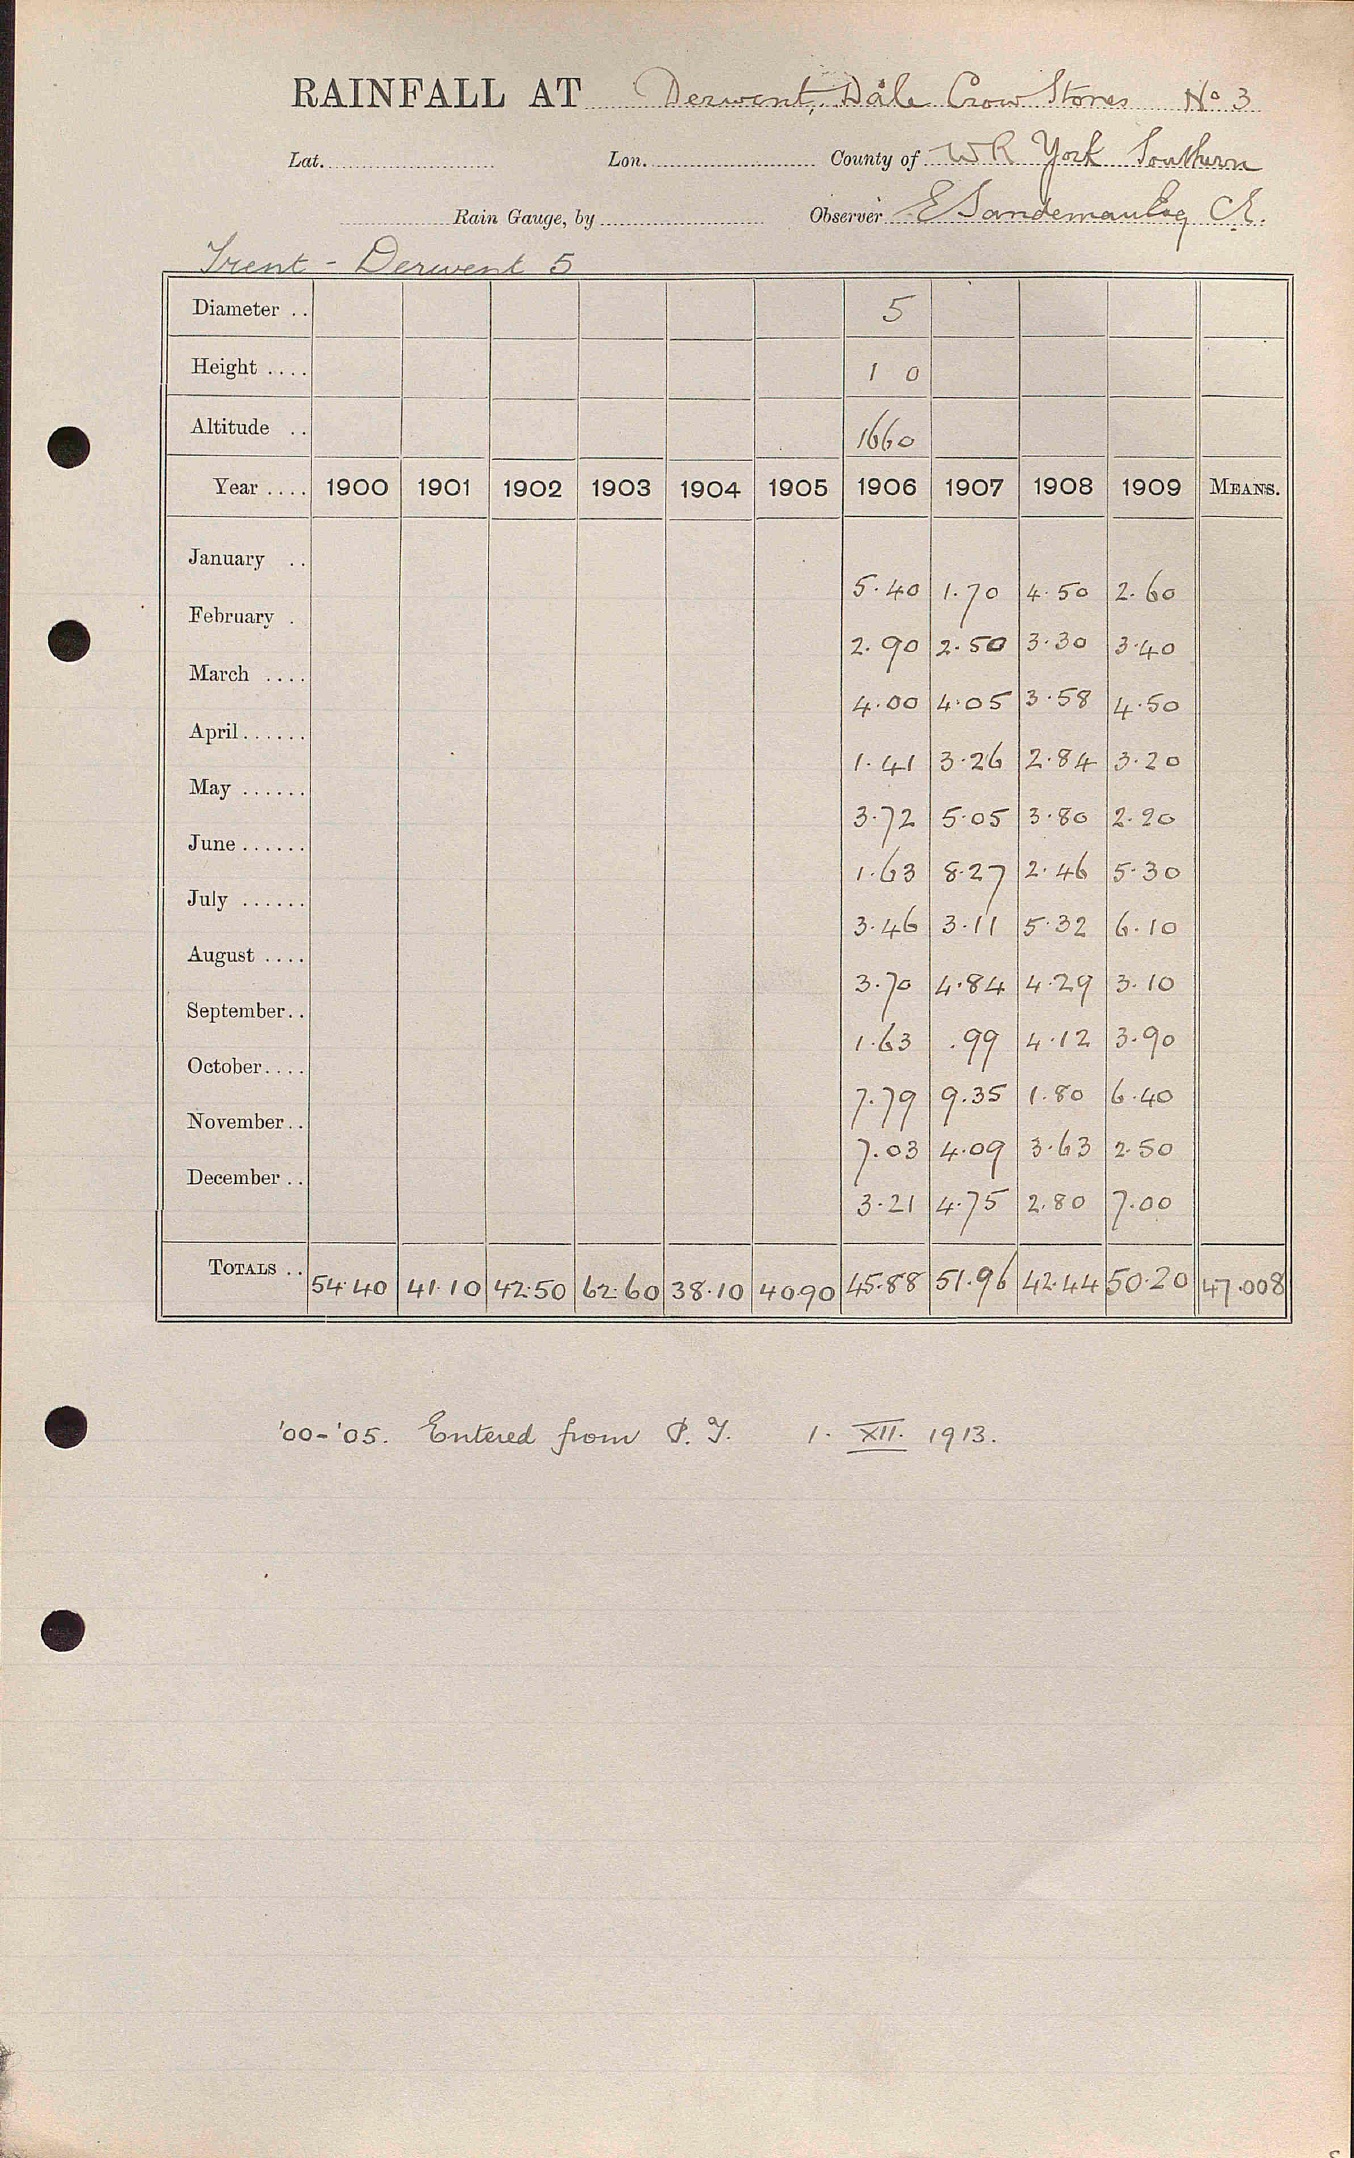 RAINFALL AT Derwent, Dale Crow Stones No 3
Lat. Lon. County of W R York Southern
Rain Gauge, by Observer E Sandeman Esq C.E.
Trent - Derwent 5
Diameter .. 5
Height .... 1 0
Altitude .. 1660
Year .... 1900 1901 1902 1903 1904 1905 1906 1907 1908 1909 MEANS.
January .. 5.40 1.70 4.50 2.60
February . 2.90 2.50 3.30 3.40
March .... 4.00 4.05 3.58 4.50
April...... 1.41 3.26 2.84 3.20
May ...... 3.72 5.05 3.80 2.20
June...... 1.63 8.27 2.46 5.30
July ...... 3.46 3.11 5.32 6.10
August .... 3.70 4.84 4.29 3.10
September.. 1.63 .99 4.12 3.90
October.... 7.79 9.35 1.80 6.40
November.. 7.03 4.09 3.63 2.50
December.. 3.21 4.75 2.80 7.00
TOTALS .. 54.40 41.10 42.50 62.60 38.10 40.90 45.88 51.96 42.44 50.20 47.008
'00-'05. Entered from P. T. 1. XII. 1913.